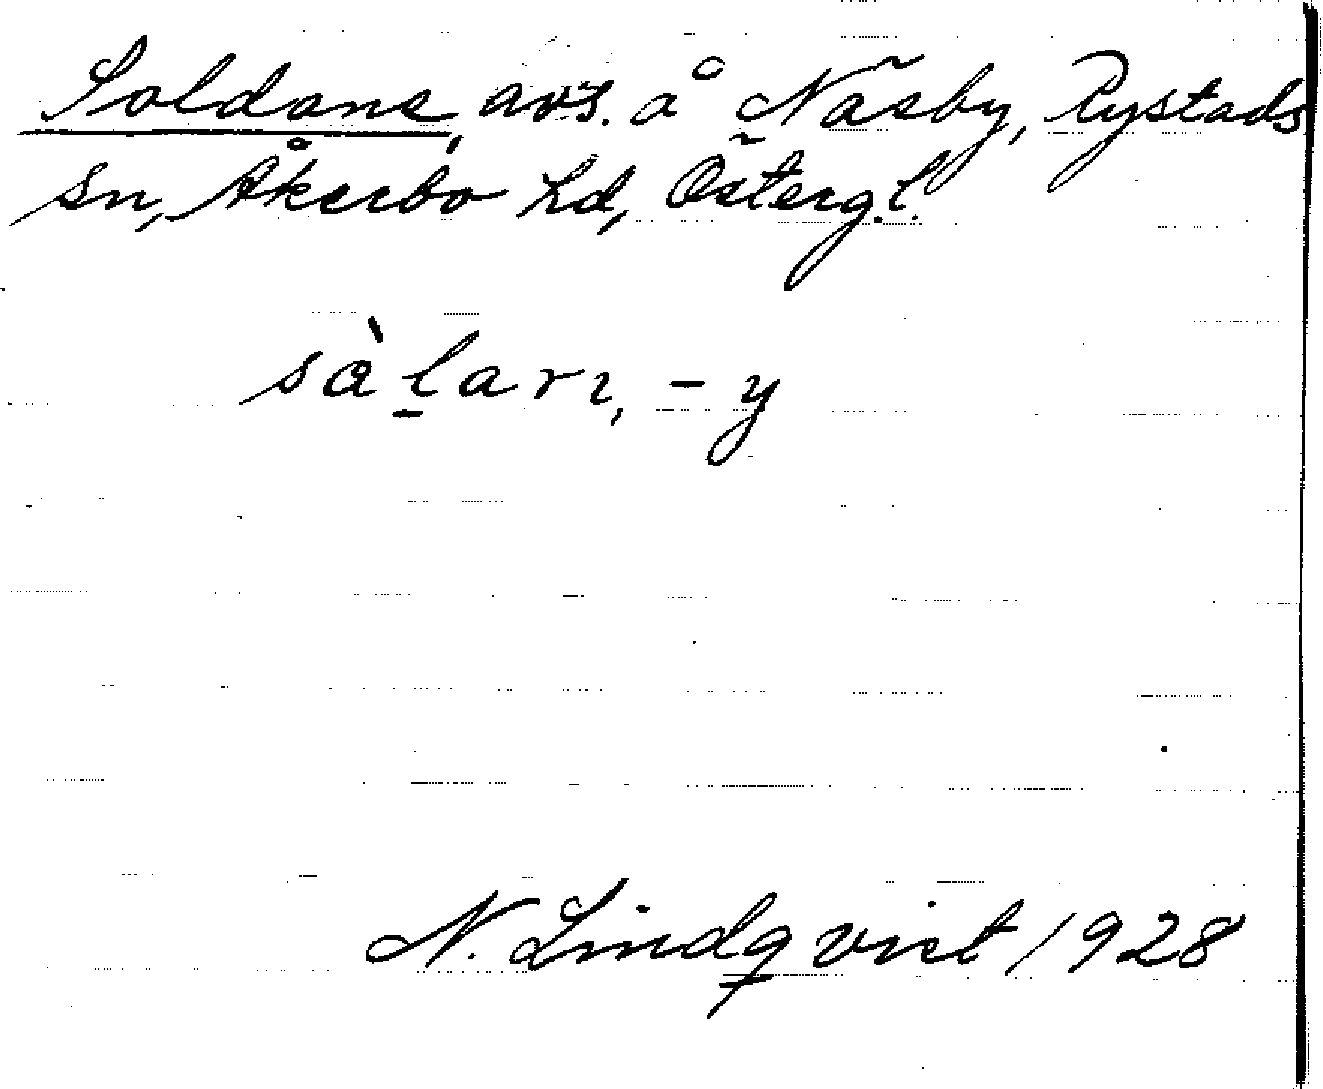 Soldans, avs. å Näsby, Rystads
sn, Åkerbo hd, Österg.l.
sàları, -y
N. Lindqvist 1928